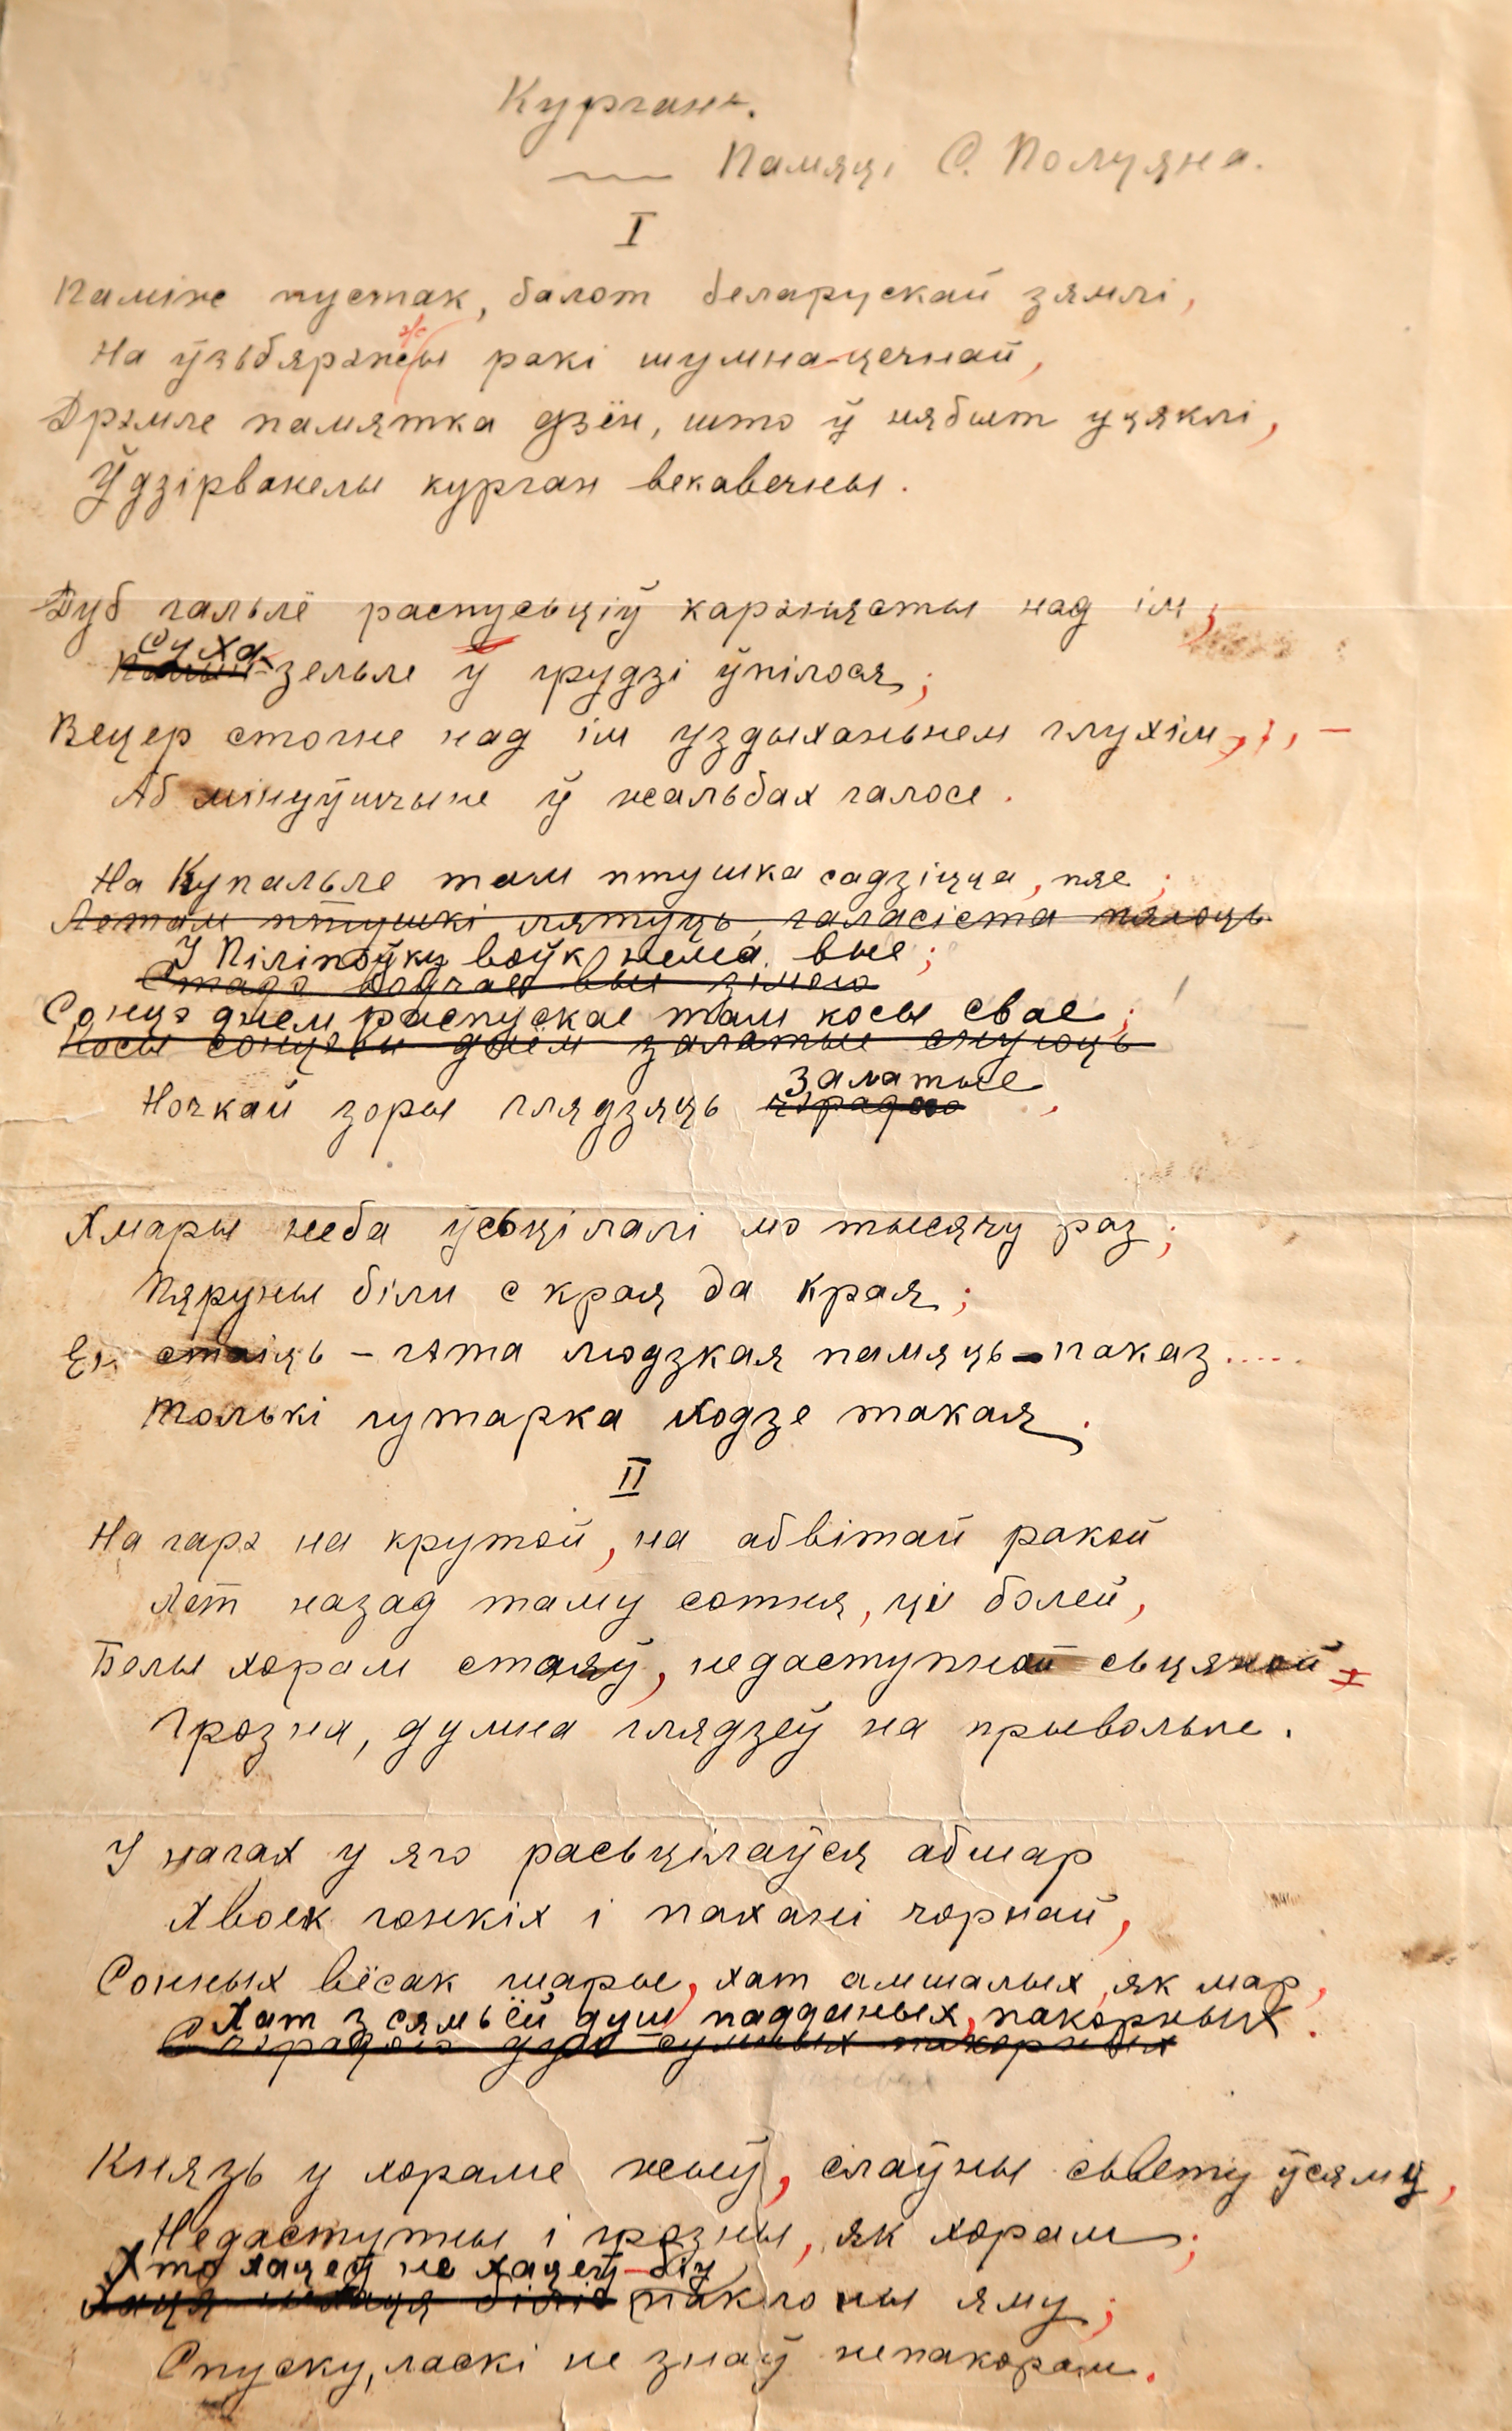 Курганъ.
Памяці С. Полуяна.
I
Паміж пустак, балот беларускай зямлі,
На ўзьбярэжжы ракі шумнацечнай,
Дрэмле памятка дзён, што ў нябыт уцяклі,
Ўдзірванелы курган векавечны.
Дуб гальлё распусьціў каранясты над ім;
Суха-
зельле ў грудзі ўпілося;
Вецер стогне над ім уздыханьнем глухім, –
Аб мінуўшчыне ў жальбах галосе.
На Купальле там птушка садзіцца, пяе;
Летам птушкі лятуць, галасіста пяюць
У Піліпоўку воўк нема вые;
Сонцэ днем распускае там косы свае;
Косы сонушка днём залатые снуюць
залатые
Ночкай зоры глядзяць чэрадою
Хмары неба ўсьцілалі мо тысячу раз;
Пяруны білі с края да края;
Ён стаіць – гэта людзкая памяць-паказ.....
Толькі гутарка ходзе такая.
II
На гарэ на крутой, на абвітай ракой
Лет назад таму сотня, ці болей,
Белы хорам стаяў, недаступной сьцяной
Грозна, думна глядзеў на прывольле.
У нагах у яго расьцілаўся абшар
Хвоек гонкіх і пахані чорнай,
Сонных вёсак шарые, хат амшалых, як мар,
Хат з сямьёй душ падданых, пакорных.
Князь у хораме жыў, слаўны сьвету ўсяму,
Недаступны і грозны, як хорам;
Хто хацеў не хацеў – біў
паклоны яму;
Спуску, ласкі не знаў непакорам.